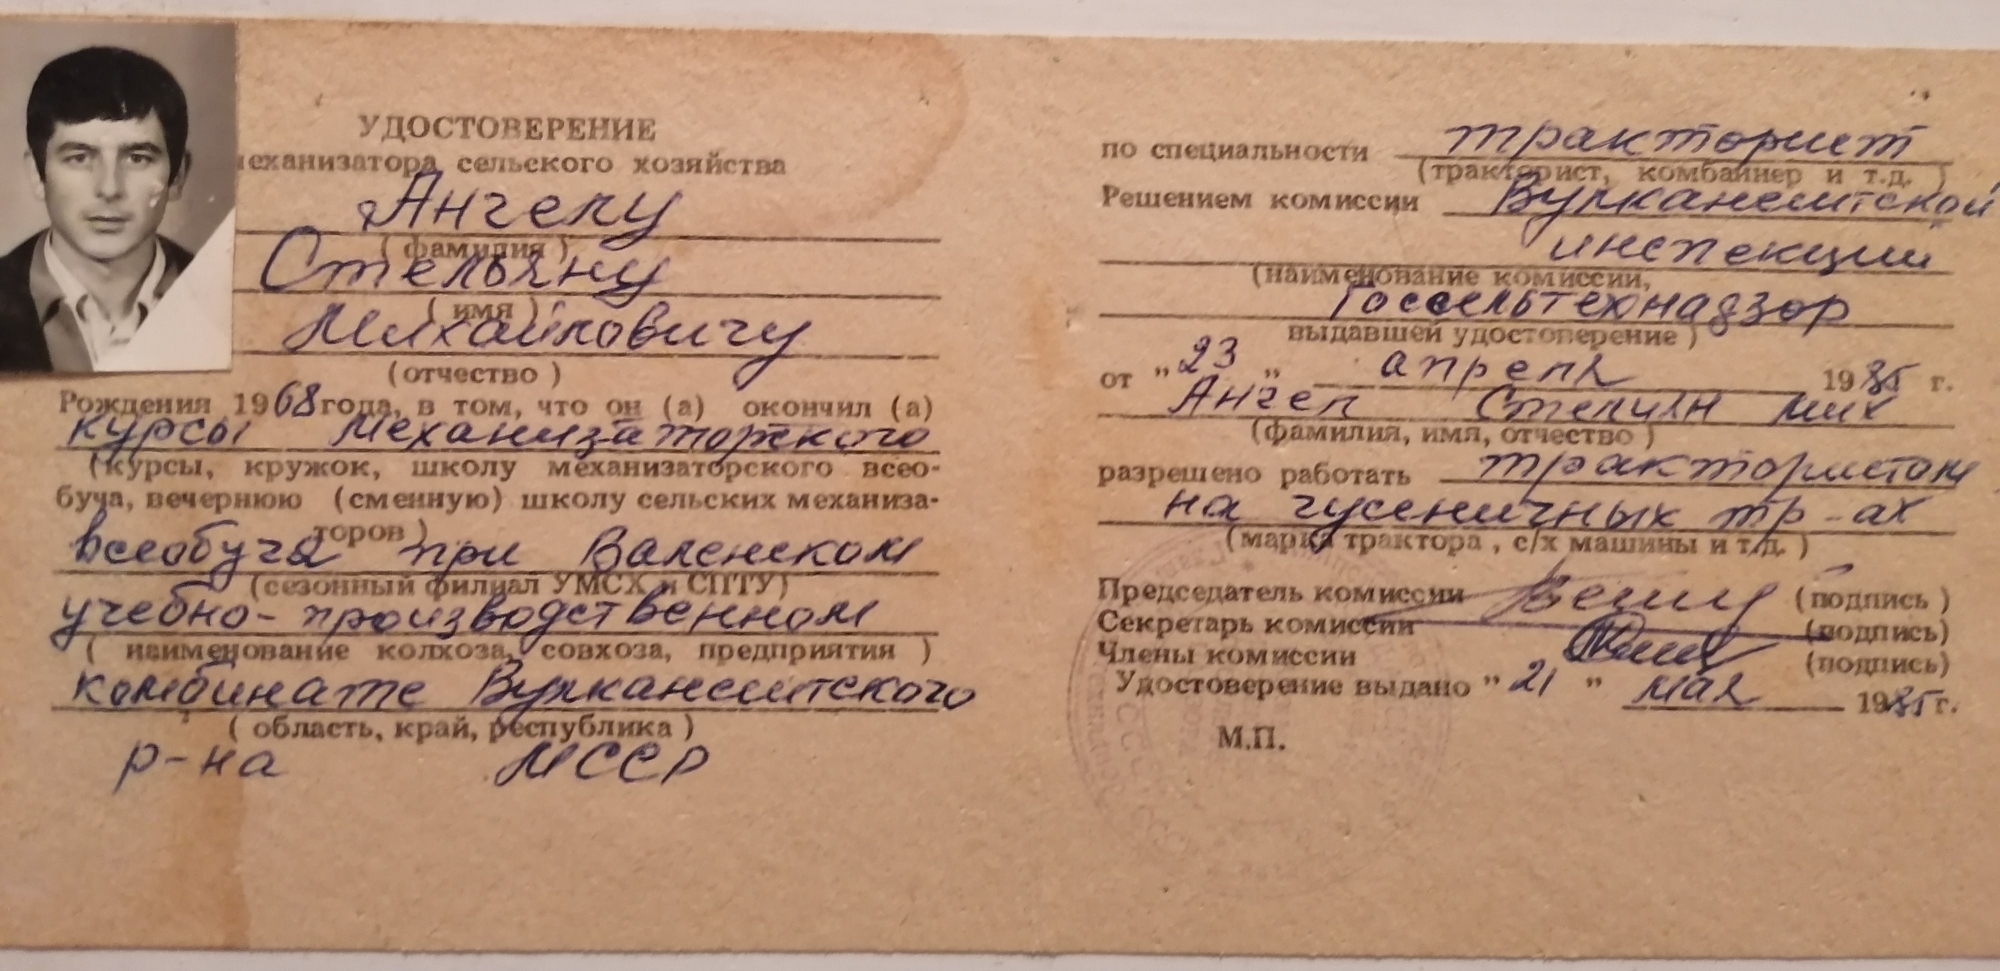 УДОСТОВЕРЕНИЕ
механизатора сельского хозяйства
Ангелу
( фамилия )
Стельяну
( имя )
Михайловичу
(отчество )
Рождения 1968 года, в том, что он (а) окончил (а)
курсы механизаторского
(курсы, кружок, школу механизаторского всео-
буча, вечернюю (сменную) школу сельских механиза-
торов)
всеобуча при Валенском
(сезонный филиал УМСХ и СПТУ)
учебно-производственном
( наименование колхоза, совхоза, предприятия )
комбинате Вулканештского
( область, край, республика )
р-на МССР
по специальности тракторист
(тракторист, комбайнер и т.д. )
Решением комиссии Вулканештской
инспекции
(наименование комиссии,
Госсельтехнадзор
выдавшей удостоверение )
от "23" апреля 1985 г.
Ангел Стелиян Мих
(фамилия, имя, отчество )
разрешено работать трактористом
на гусеничных тр-ах
(марка трактора , с/х машины и т.д. )
Председатель комиссии (подпись )
Секретарь комиссии (подпись)
Члены комиссии (подпись)
Удостоверение выдано "21" мая 1985 г.
М.П.